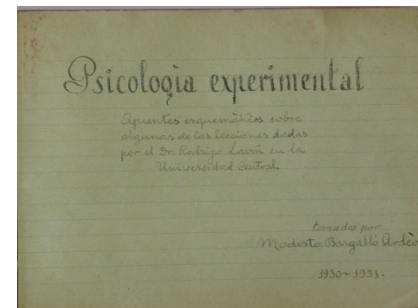 Psicología experimental
Apuntes esquemáticos sobre
algunas de las lecciones dadas
por el Dr. Rodrigo Lavín en la
Universidad Central
tomados por
Modesto Bargalló Ardèvo
1930~1931.